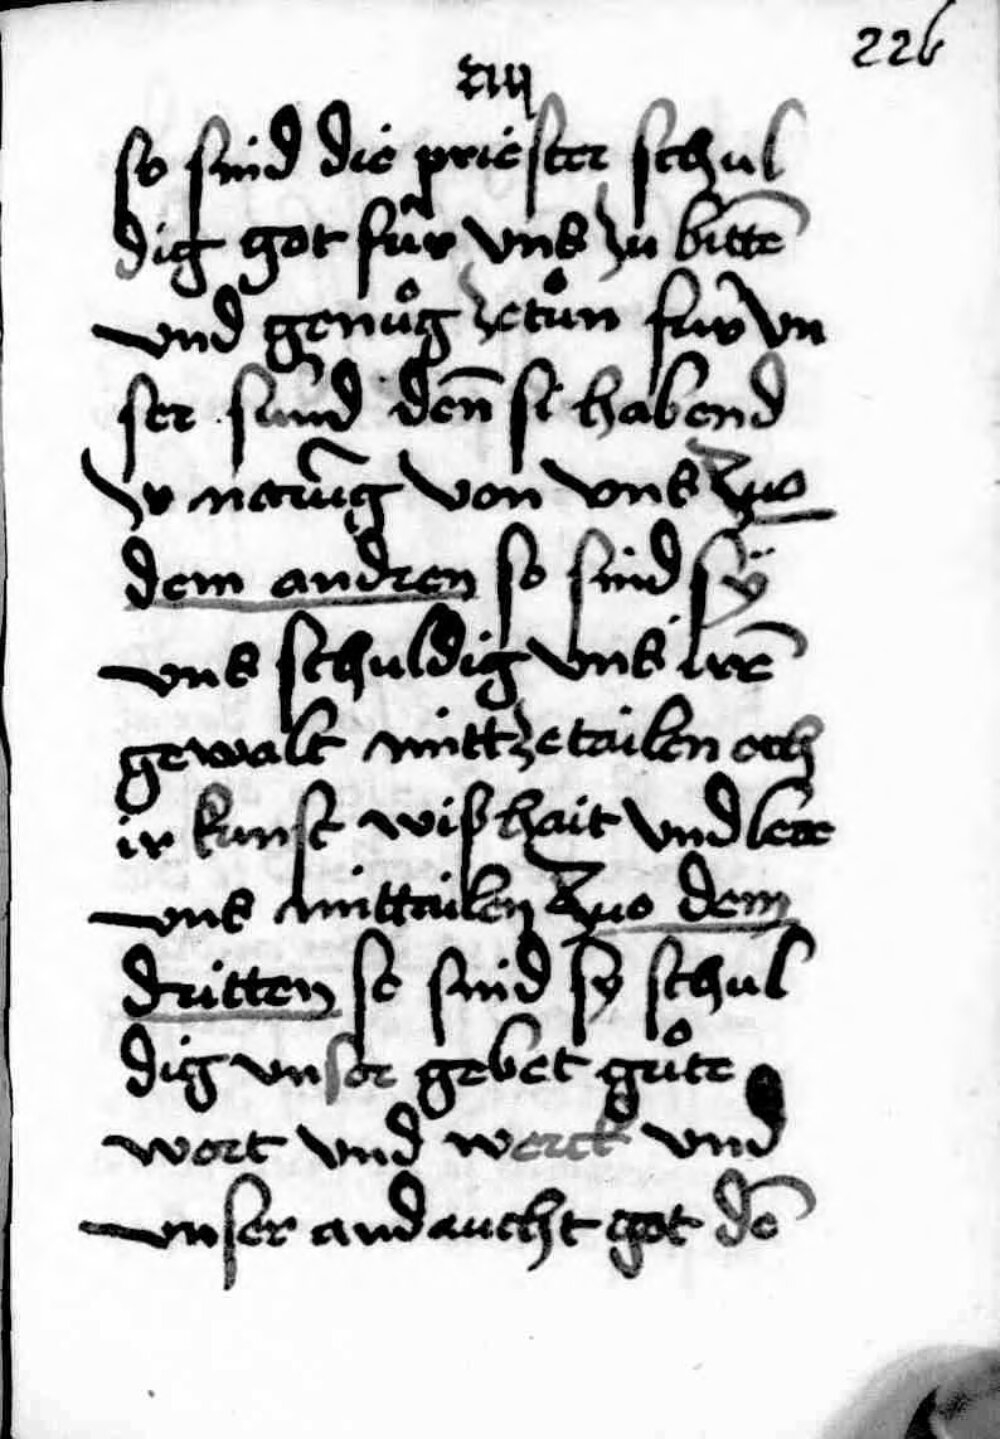 226
xiij
so sind die priester schul
dig got für vns zu bittē
vnd genůg zetůn fur vn
ser sünd den̄ si habend
ir narūg von vns Zuo
dem andren so sind sÿ
vns schuldig vns irē
gewalt mittzetailen och
ir kunst wißhait vnd lere
vns mittailen Zuo dem
dritten so sind sy schul
dig vnser gebet gůte
wort vnd werck vnd
vnser andaucht got dē